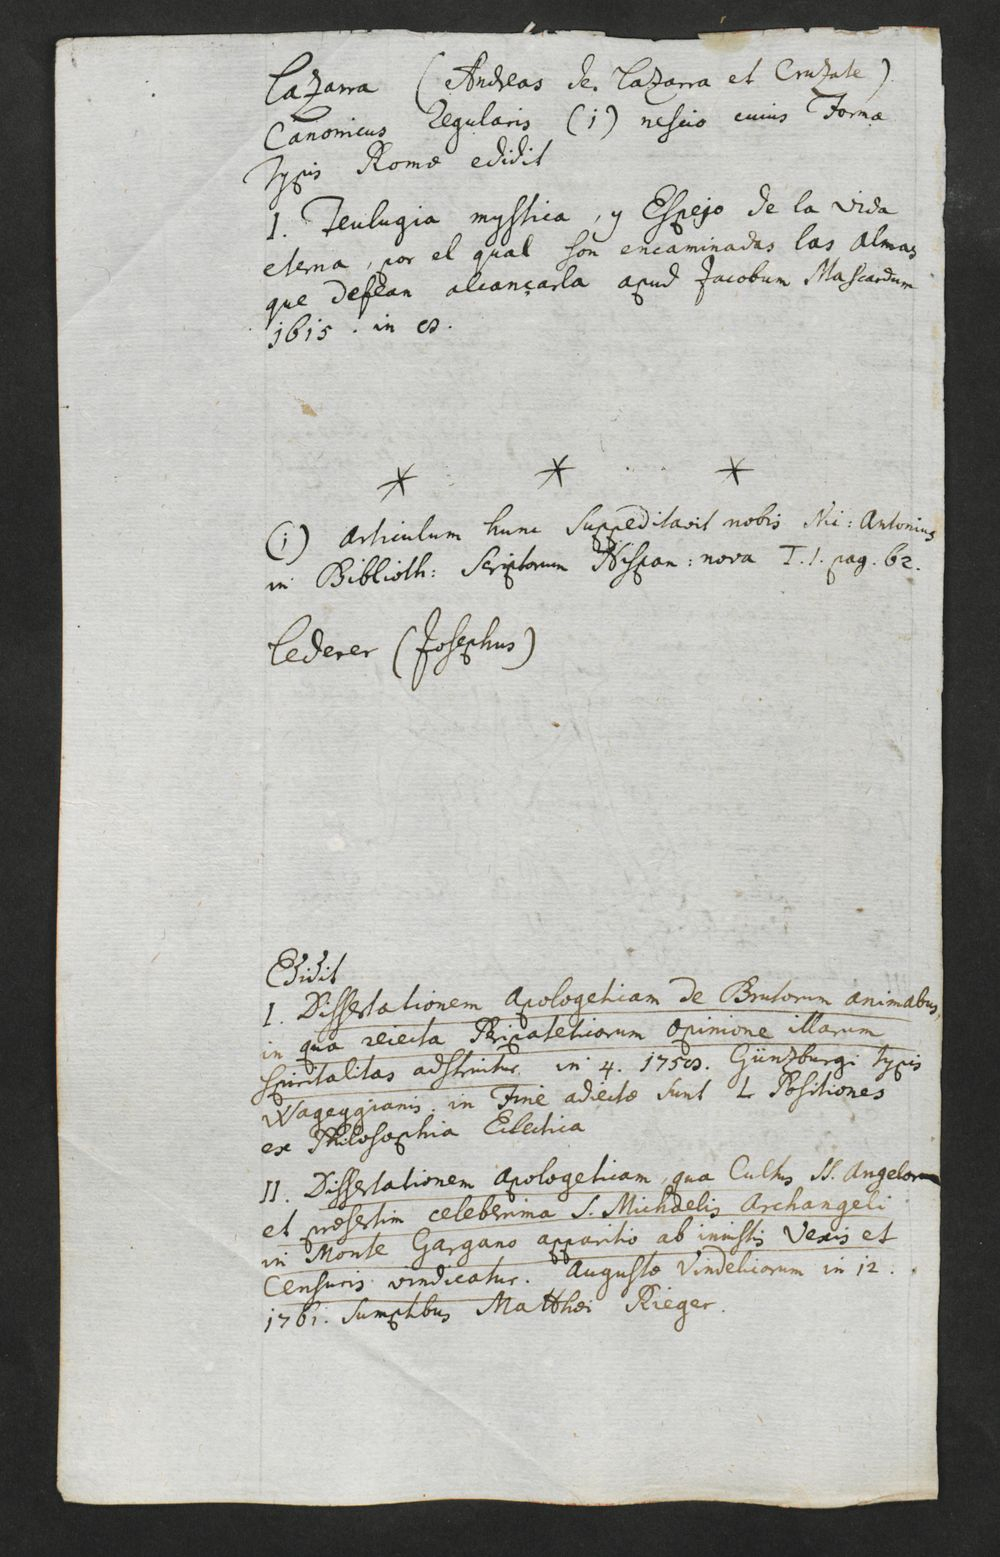 Lazarra (Andreas de Lazarra et Cruzate)
Canonicus Regularis (1) nescio cuius Formæ
typis Romæ edidit
I. Teulugia mystica, y Espejo de la vida
eterna, por el qual son encaminadas las almas
que desean alcançarla apud Jacobum Mascardum
1615. in 8.
* * *
(1) Articulum hunc suppeditavit nobis Nic: Antonius
in Biblioth: Scriptorum Hispan: nova T. 1. pag. 62.
Lederer (Josephus)
Edidit
I. Dissertationem Apologeticam de Brutorum animabus,
in qua reiecta Peripateticorum opinione illarum
spiritalitas adstruitur. in 4. 1758. Günzburgi typis
Wageggianis. in Fine adiectæ sunt L Positiones
ex Philosophia Eclectica
II. Dissertationem Apologeticam, qua Cultus SS. Angelorum
et præsertim celeberrima S. Michaelis Archangeli
in Monte Gargano apparitio ab iniustis Vexis et
Censuris vindicatur. Augustæ Vindelicorum in 12.
1761. sumptibus Matthæi Rieger.